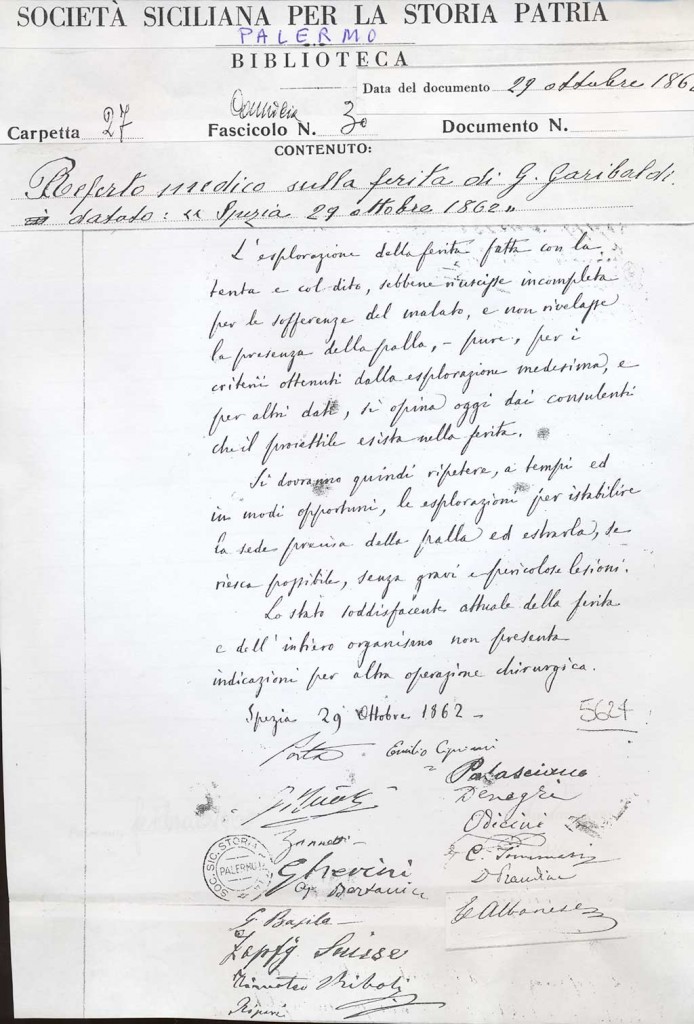 SOCIETÀ SICILIANA PER LA STORIA PATRIA
PALERMO
BIBLIOTECA
Data del documento 29 ottobre 1862
Carpetta 27 Fascicolo N. 30 Documento N.
CONTENUTO:
Referto medico sulla ferita di G. Garibaldi.
datato: "Spezia 29 ottobre 1862"
L'esplorazione della ferita fatta con la
tenta e col dito, sebbene riuscisse incompleta
per le sofferenze del malato, e non rivelasse
la presenza della palla, – pure, per i
criterii ottenuti dalla esplorazione medesima, e
per altri dati, si opina oggi dai consulenti
che il proiettile esista nella ferita.
Si dovranno quindi ripetere, a tempi ed
in modi opportuni, le esplorazioni per istabilire
la sede precisa della palla ed estrarla, se
riesca possibile, senza gravi e pericolose lesioni.
Lo stato soddisfacente attuale della ferita
e dell'intiero organismo non presenta
indicazioni per altra operazione chirurgica.
Spezia 29 Ottobre 1862 –
5624
Porta Emilio Cipriani
Palasciano
Denegri
Odicini
Zannetti
SOC. SIC. STORIA
PALERMO
Gherini
C. Tommasi
Bertani
Prandina
E Albanese
G Basile
Zopfy Suisse
Timoteo Riboli
Ripari